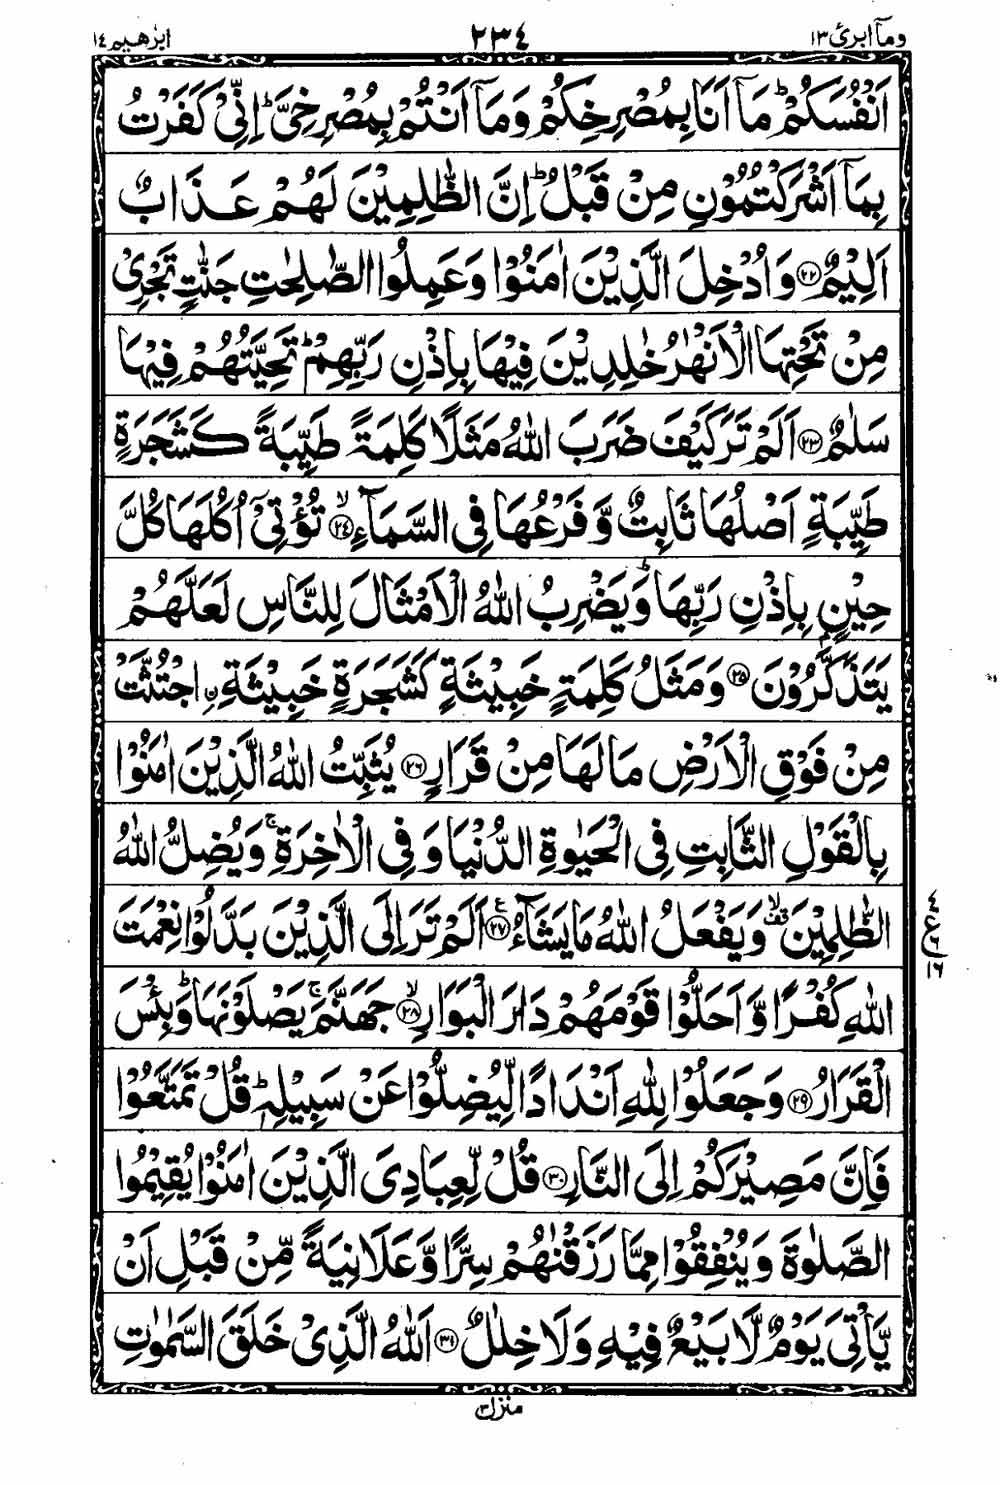 ومآ ابرئ ١٣
٢٣٤
ابرٰهیم ١٤
اَنْفُسَكُمْ ؕ مَاۤ اَنَا بِمُصْرِخِكُمْ وَمَاۤ اَنْتُمْ بِمُصْرِخِیَّ ؕ اِنِّیْ كَفَرْتُ
بِمَاۤ اَشْرَكْتُمُوْنِ مِنْ قَبْلُ ؕ اِنَّ الظّٰلِمِیْنَ لَهُمْ عَذَابٌ
اَلِیْمٌ ۝٢٢ وَاُدْخِلَ الَّذِیْنَ اٰمَنُوْا وَعَمِلُوا الصّٰلِحٰتِ جَنّٰتٍ تَجْرِیْ
مِنْ تَحْتِهَا الْاَنْهٰرُ خٰلِدِیْنَ فِیْهَا بِاِذْنِ رَبِّهِمْ ؕ تَحِیَّتُهُمْ فِیْهَا
سَلٰمٌ ۝٢٣ اَلَمْ تَرَ كَیْفَ ضَرَبَ اللّٰهُ مَثَلًا كَلِمَةً طَیِّبَةً كَشَجَرَةٍ
طَیِّبَةٍ اَصْلُهَا ثَابِتٌ وَّفَرْعُهَا فِی السَّمَآءِ ۝٢٤ ۙ تُؤْتِیْۤ اُكُلَهَا كُلَّ
حِیْنٍۭ بِاِذْنِ رَبِّهَا ؕ وَیَضْرِبُ اللّٰهُ الْاَمْثَالَ لِلنَّاسِ لَعَلَّهُمْ
یَتَذَكَّرُوْنَ ۝٢٥ وَمَثَلُ كَلِمَةٍ خَبِیْثَةٍ كَشَجَرَةٍ خَبِیْثَةِ ِ۟اجْتُثَّتْ
مِنْ فَوْقِ الْاَرْضِ مَا لَهَا مِنْ قَرَارٍ ۝٢٦ یُثَبِّتُ اللّٰهُ الَّذِیْنَ اٰمَنُوْا
بِالْقَوْلِ الثَّابِتِ فِی الْحَیٰوةِ الدُّنْیَا وَفِی الْاٰخِرَةِ ۚ وَیُضِلُّ اللّٰهُ
الظّٰلِمِیْنَ ۙ۫ وَیَفْعَلُ اللّٰهُ مَا یَشَآءُ ۝٢٧ ع اَلَمْ تَرَ اِلَی الَّذِیْنَ بَدَّلُوْا نِعْمَتَ
اللّٰهِ كُفْرًا وَّاَحَلُّوْا قَوْمَهُمْ دَارَ الْبَوَارِ ۝٢٨ ۙ جَهَنَّمَ ۚ یَصْلَوْنَهَا ؕ وَبِئْسَ
الْقَرَارُ ۝٢٩ وَجَعَلُوْا لِلّٰهِ اَنْدَادًا لِّیُضِلُّوْا عَنْ سَبِیْلِهٖ ؕ قُلْ تَمَتَّعُوْا
فَاِنَّ مَصِیْرَكُمْ اِلَی النَّارِ ۝٣٠ قُلْ لِّعِبَادِیَ الَّذِیْنَ اٰمَنُوْا یُقِیْمُوا
الصَّلٰوةَ وَیُنْفِقُوْا مِمَّا رَزَقْنٰهُمْ سِرًّا وَّعَلَانِیَةً مِّنْ قَبْلِ اَنْ
یَّاْتِیَ یَوْمٌ لَّا بَیْعٌ فِیْهِ وَلَا خِلٰلٌ ۝٣١ اَللّٰهُ الَّذِیْ خَلَقَ السَّمٰوٰتِ
منزل٣